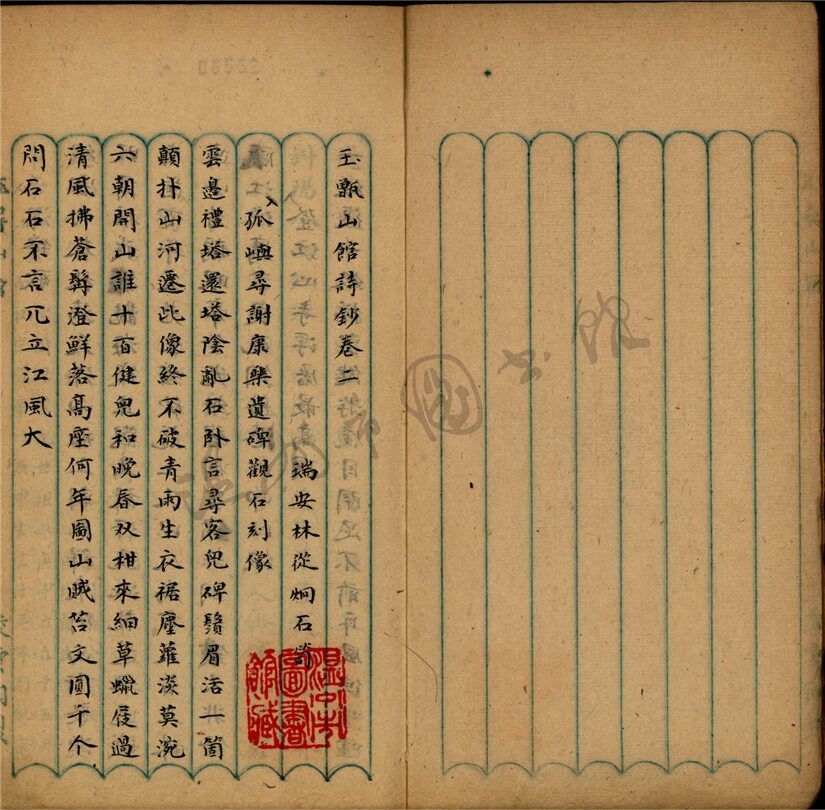 玉甑山館詩鈔卷二
瑞安林從炯石笥
孤嶼尋謝康樂遺碑觀石刻像
雲邊禮塔還塔陰亂石卧言尋客兒碑鬚眉活一箇
顛抃山河遷此像終不破青雨生衣裾塵蘿淡莫涴
六朝開山誰十百健兒和晚春双柑來細草蠟屐過
清風拂蒼髯澄鮮落高座何年圖山賊苔文圓千个
問石石不言兀立江風大
溫州市圖書館藏